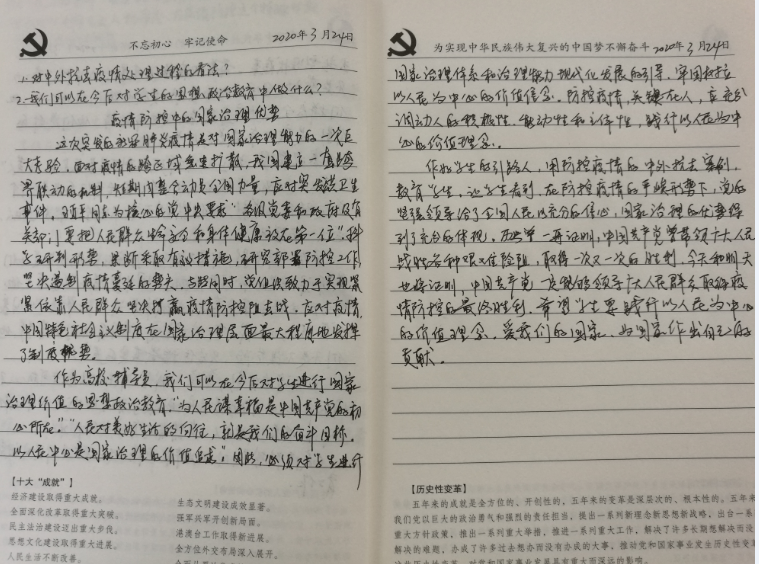 不忘初心 牢记使命 2020年3月24日
1.对中外抗击疫情处理过程的看法？
2.我们可以在今后对学生的思想政治教育中做什么？
疫情防控中的国家治理优势
这次突发的新冠肺炎疫情是对国家治理能力的一次巨
大考验，面对疫情的跨区域发生扩散，我国建立一套跨
界联动的机制，短期内整合动员全国力量，应对突发卫生
事件。习近平同志为核心的党中央要求“各级党委和政府及有
关部门要把人民群众生命安全和身体健康放在第一位”，科
学研判形势，果断采取有效措施，研究部署防控工作，
坚决遏制疫情蔓延的势头。与此同时，党组织致力于实现紧
紧依靠人民群众坚决打赢疫情防控阻击战。应对疫情，
中国特色社会主义制度在国家治理层面最大程度地发挥
了制度优势。
作为高校辅导员，我们可以在今后对学生进行国家
治理价值的思想政治教育，“为人民谋幸福是中国共产党的初
心所在。”“人民对美好生活的向往，就是我们的奋斗目标。
以人民中心是国家治理的价值追求”。因此，必须对学生进行
【十大“成就”】
经济建设取得重大成就。
全面深化改革取得重大突破。
民主法治建设迈出重大步伐。
思想文化建设取得重大进展。
人民生活不断改善。
生态文明建设成效显著。
强军兴军开创新局面。
港澳台工作取得新进展。
全方位外交布局深入展开。
为实现中华民族伟大复兴的中国梦不懈奋斗 2020年3月24日
国家治理体系和治理能力现代化发展的引导，牢固树立
以人民为中心的价值信念。防控疫情，关键在人，应充分
调动人的积极性、能动性和主体性，践行以人民为中
心的价值理念。
作为学生的引路人，用防控疫情的中外抗击案例，
教育学生，让学生看到，在防控疫情的严峻形势下，党的
坚强领导给了全国人民以充分的信心，国家治理的优势得
到了充分的体现。历史一再证明，中国共产党带领广大人民
战胜各种艰难险阻，取得一次又一次的胜利，今天和明天
也将证明，中国共产党一定能够领导广大人民群众取得疫
情防控的最终胜利。希望学生要践行以人民为中心
的价值理念，爱我们的国家，为国家作出自己的
贡献。
【历史性变革】
五年来的成就是全方位的、开创性的，五年来的变革是深层次的、根本性的。五年来
我们党以巨大的政治勇气和强烈的责任担当，提出一系列新理念新思想新战略，出台一系
重大方针政策，推出一系列重大举措，推进一系列重大工作，解决了许多长期想解决而没
解决的难题，办成了许多过去想办而没有办成的大事，推动党和国家事业发生历史性变革